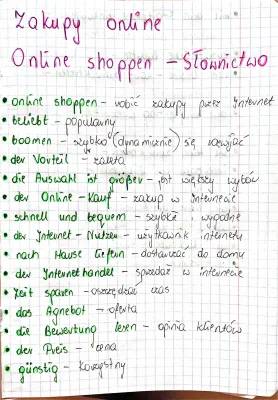 Zakupy online
Online shoppen – Słownictwo
• online shoppen – robić zakupy przez Internet
• beliebt – popularny
• boomen – szybko (dynamicznie) się rozwijać
• der Vorteil – zaleta
• die Auswahl ist größer – jest większy wybór
• der Online-Kauf – zakup w Internecie
• schnell und bequem – szybkie i wygodne
• der Internet-Nutzer – użytkownik internetu
• nach Hause liefern – dostarczać do domu
• der Internethandel – sprzedaż w internecie
• Zeit sparen – oszczędzać czas
• das Agnebot – oferta
• die Bewertung lesen – opinia klientów
• der Preis – cena
• günstig – korzystny